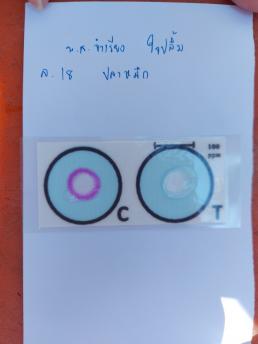 น.ส. จำเรียง ใจปลื้ม
ล. 18 ปลาหมึก
100
ppm
C T